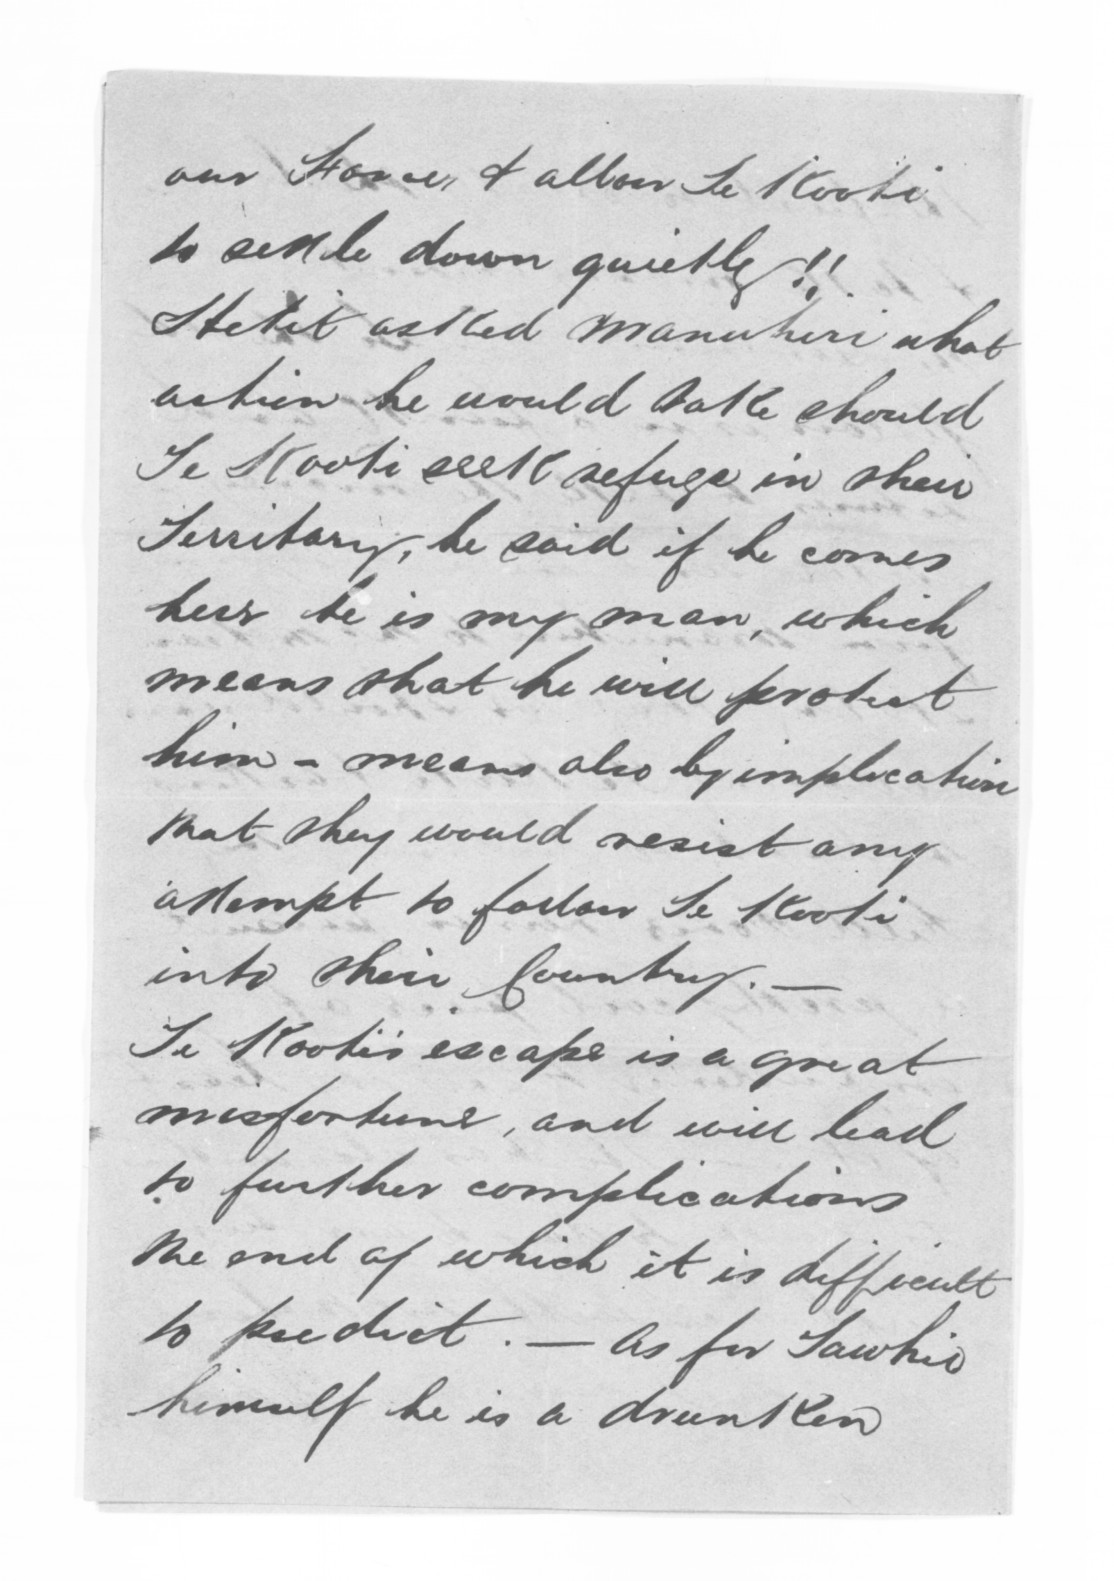 our Force, & allow Te Kooti
to settle down quietly!!
Hettit asked Manuhiri what
action he would take should
Te Kooti seek refuge in their
Territory, he said if he comes
here he is my man, which
means that he will protect
him - means also by implication
that they would resist any
attempt to follow Te Kooti
into their Country. —
Te Kooti's escape is a great
misfortune, and will lead
to further complications
the end of which it is difficult
to predict. — As for Tawhio
himself he is a drunken